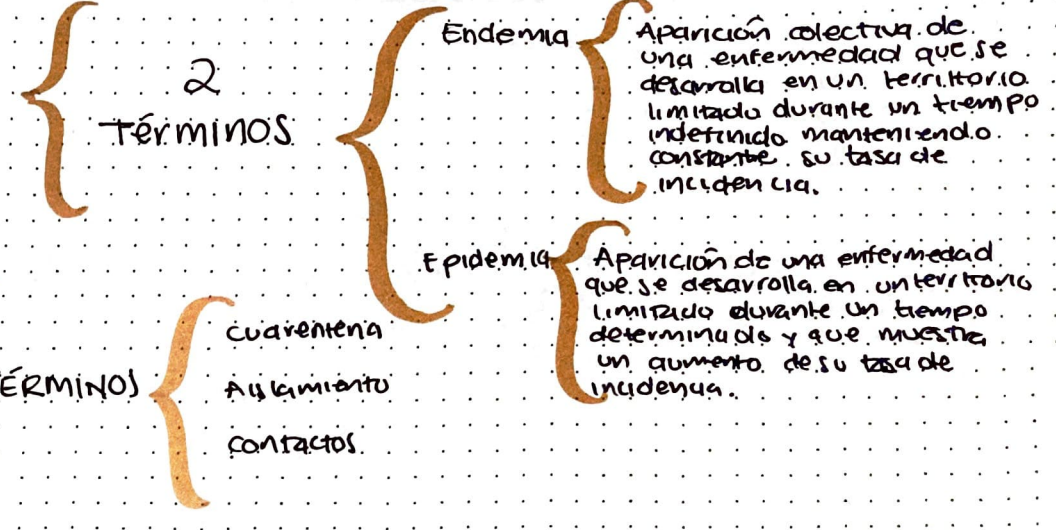 2
Términos
Endemia
Aparición colectiva de
una enfermedad que se
desarrolla en un territorio
limitado durante un tiempo
indefinido manteniendo
constante su tasa de
incidencia.
Epidemia
Aparición de una enfermedad
que se desarrolla en un territorio
limitado durante un tiempo
determinado y que muestra
un aumento de su tasa de
incidencia.
TÉRMINOS
Cuarentena
Aislamiento
Contactos